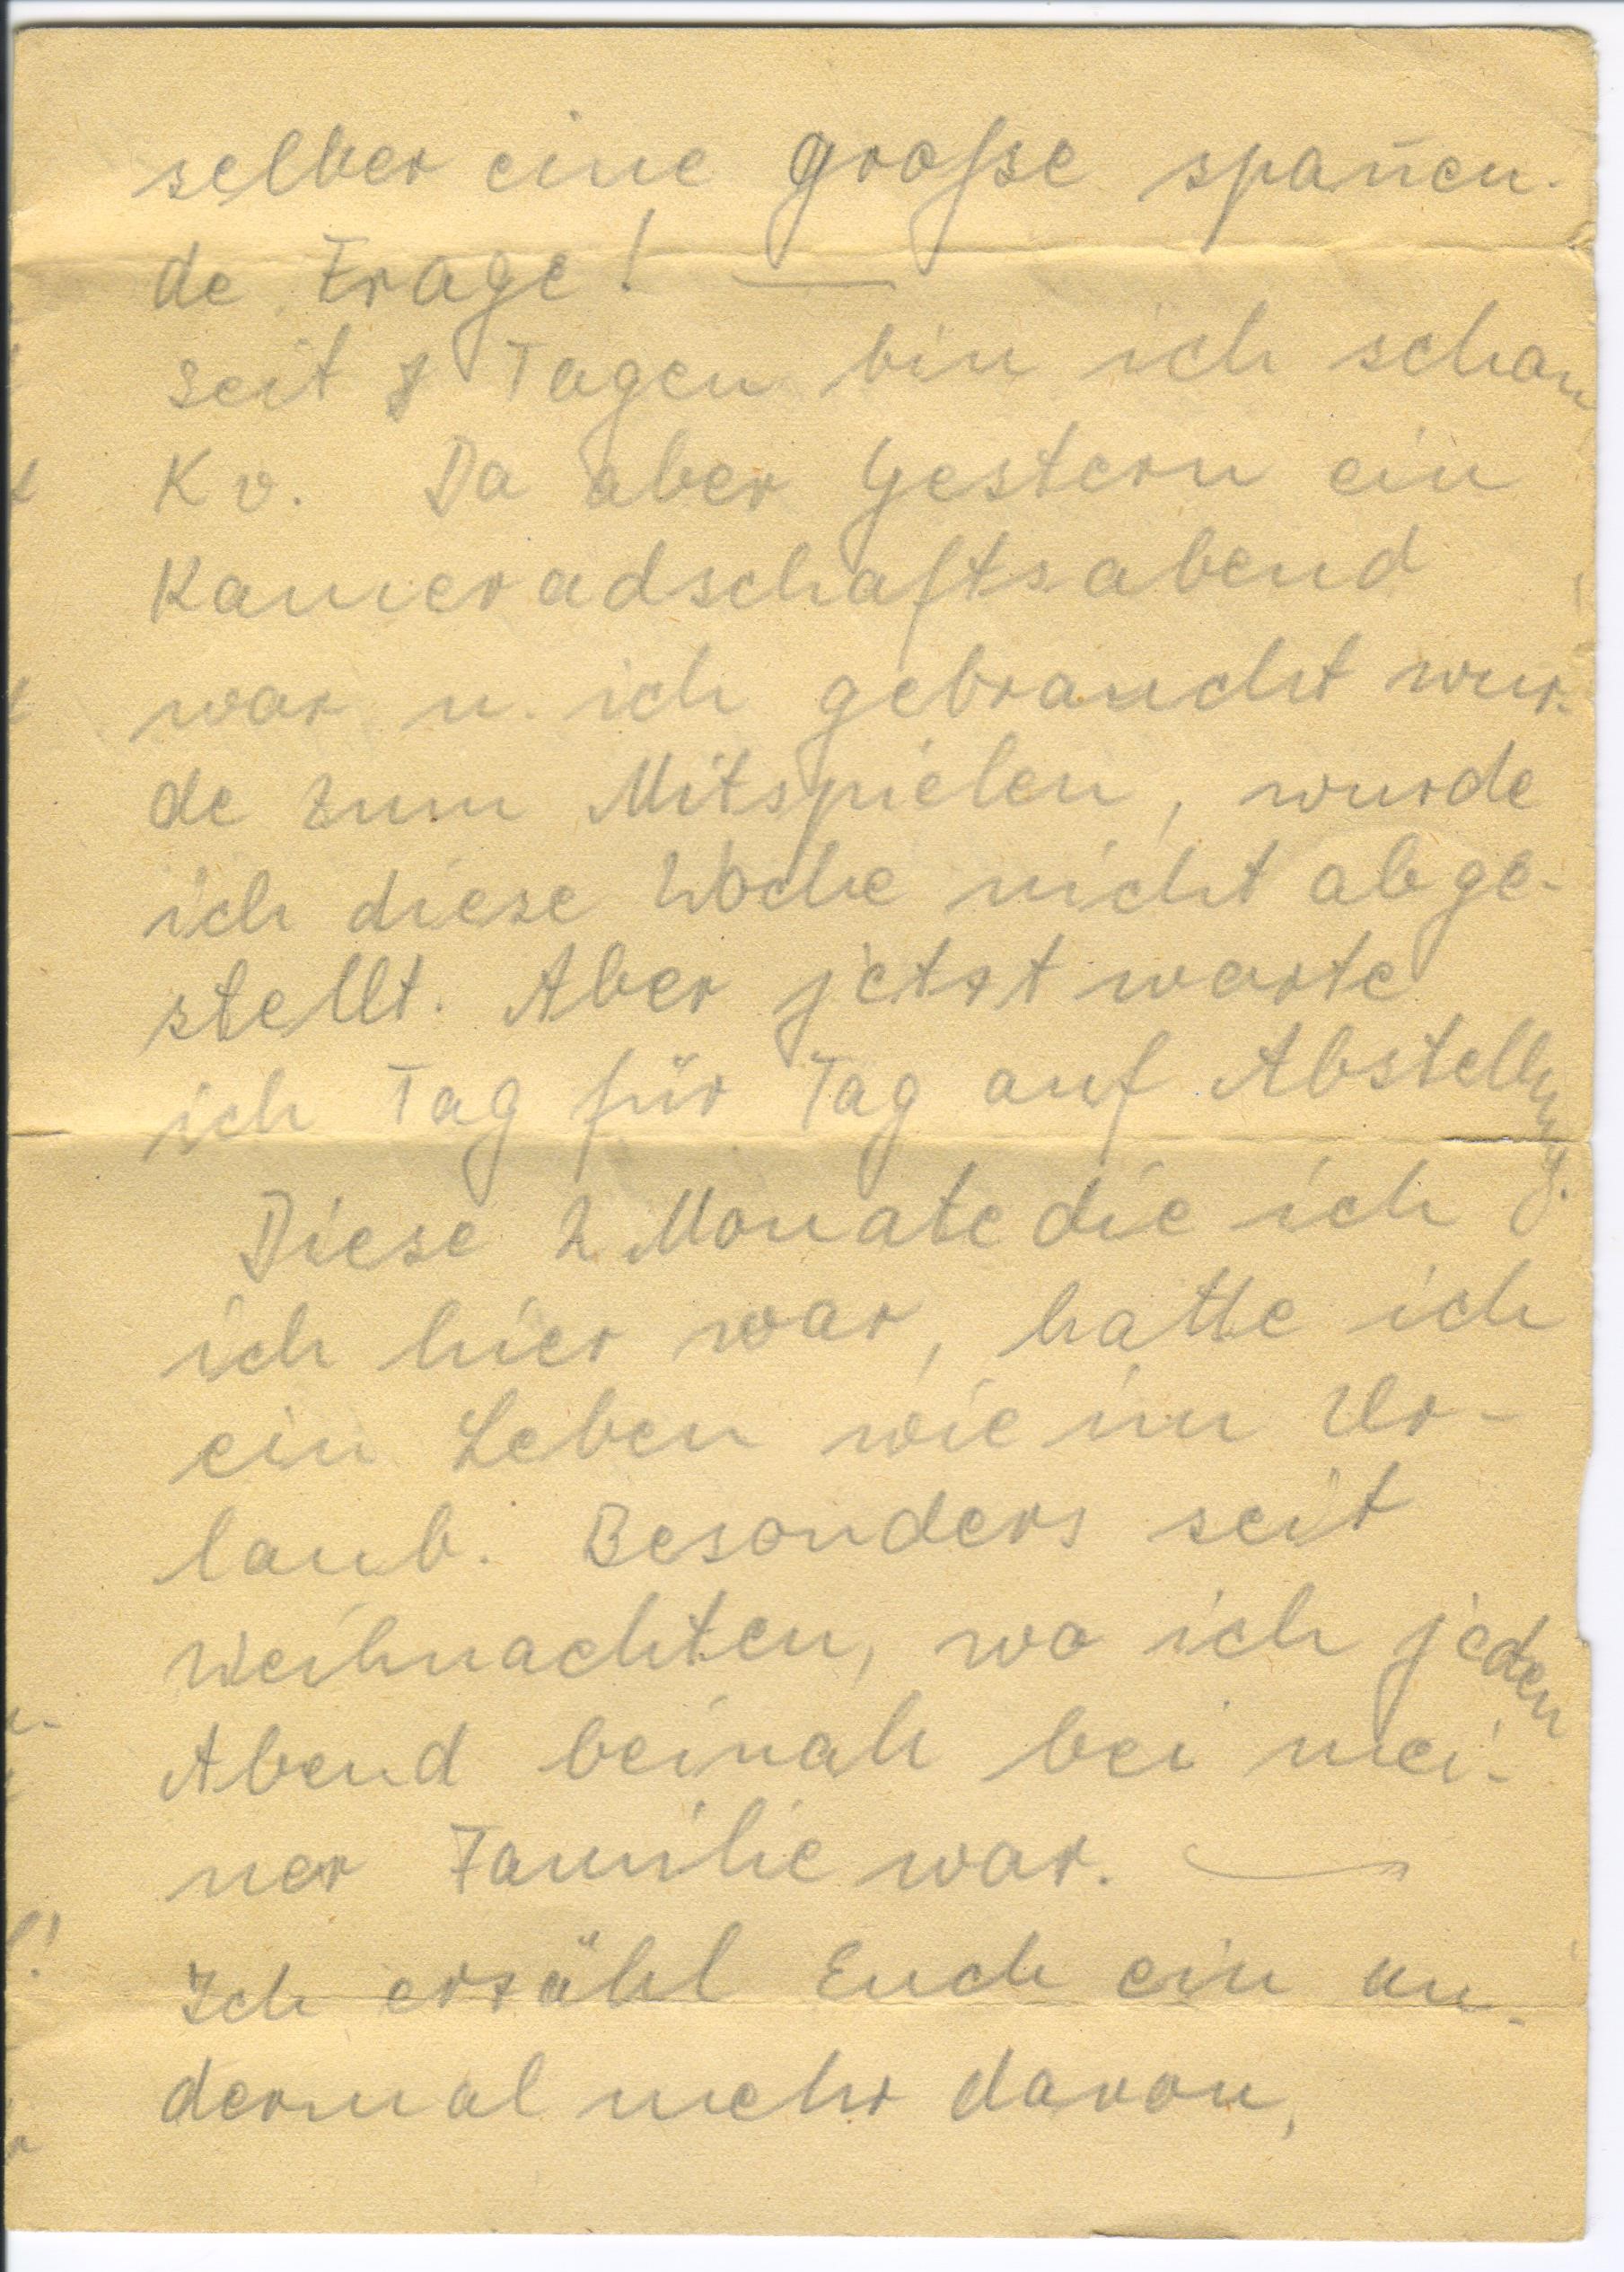 selber eine große span̄en-
de Frage! —
seit 8 Tagen bin ich schon
Kv. Da aber Gestern ein
Kameradschaftsabend
war u. ich gebraucht wur-
de zum Mitspielen, wurde
ich diese Woche nicht abge-
stellt. Aber jetzt warte
ich Tag für Tag auf Abstellung.
Diese 2 Monate die ich
ich hier war, hatte ich
ein Leben wie im Ur-
laub. Besonders seit
Weihnachten, wo ich jeden
Abend beinah bei mei-
ner Familie war. —
Ich erzähl Euch ein an-
dermal mehr davon,